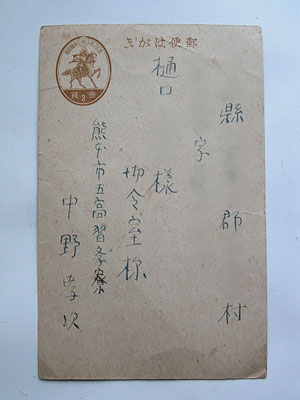 郵便はがき
縣 郡 村
字
樋口 様
御令室様
熊本市五高習學寮
中野孝次